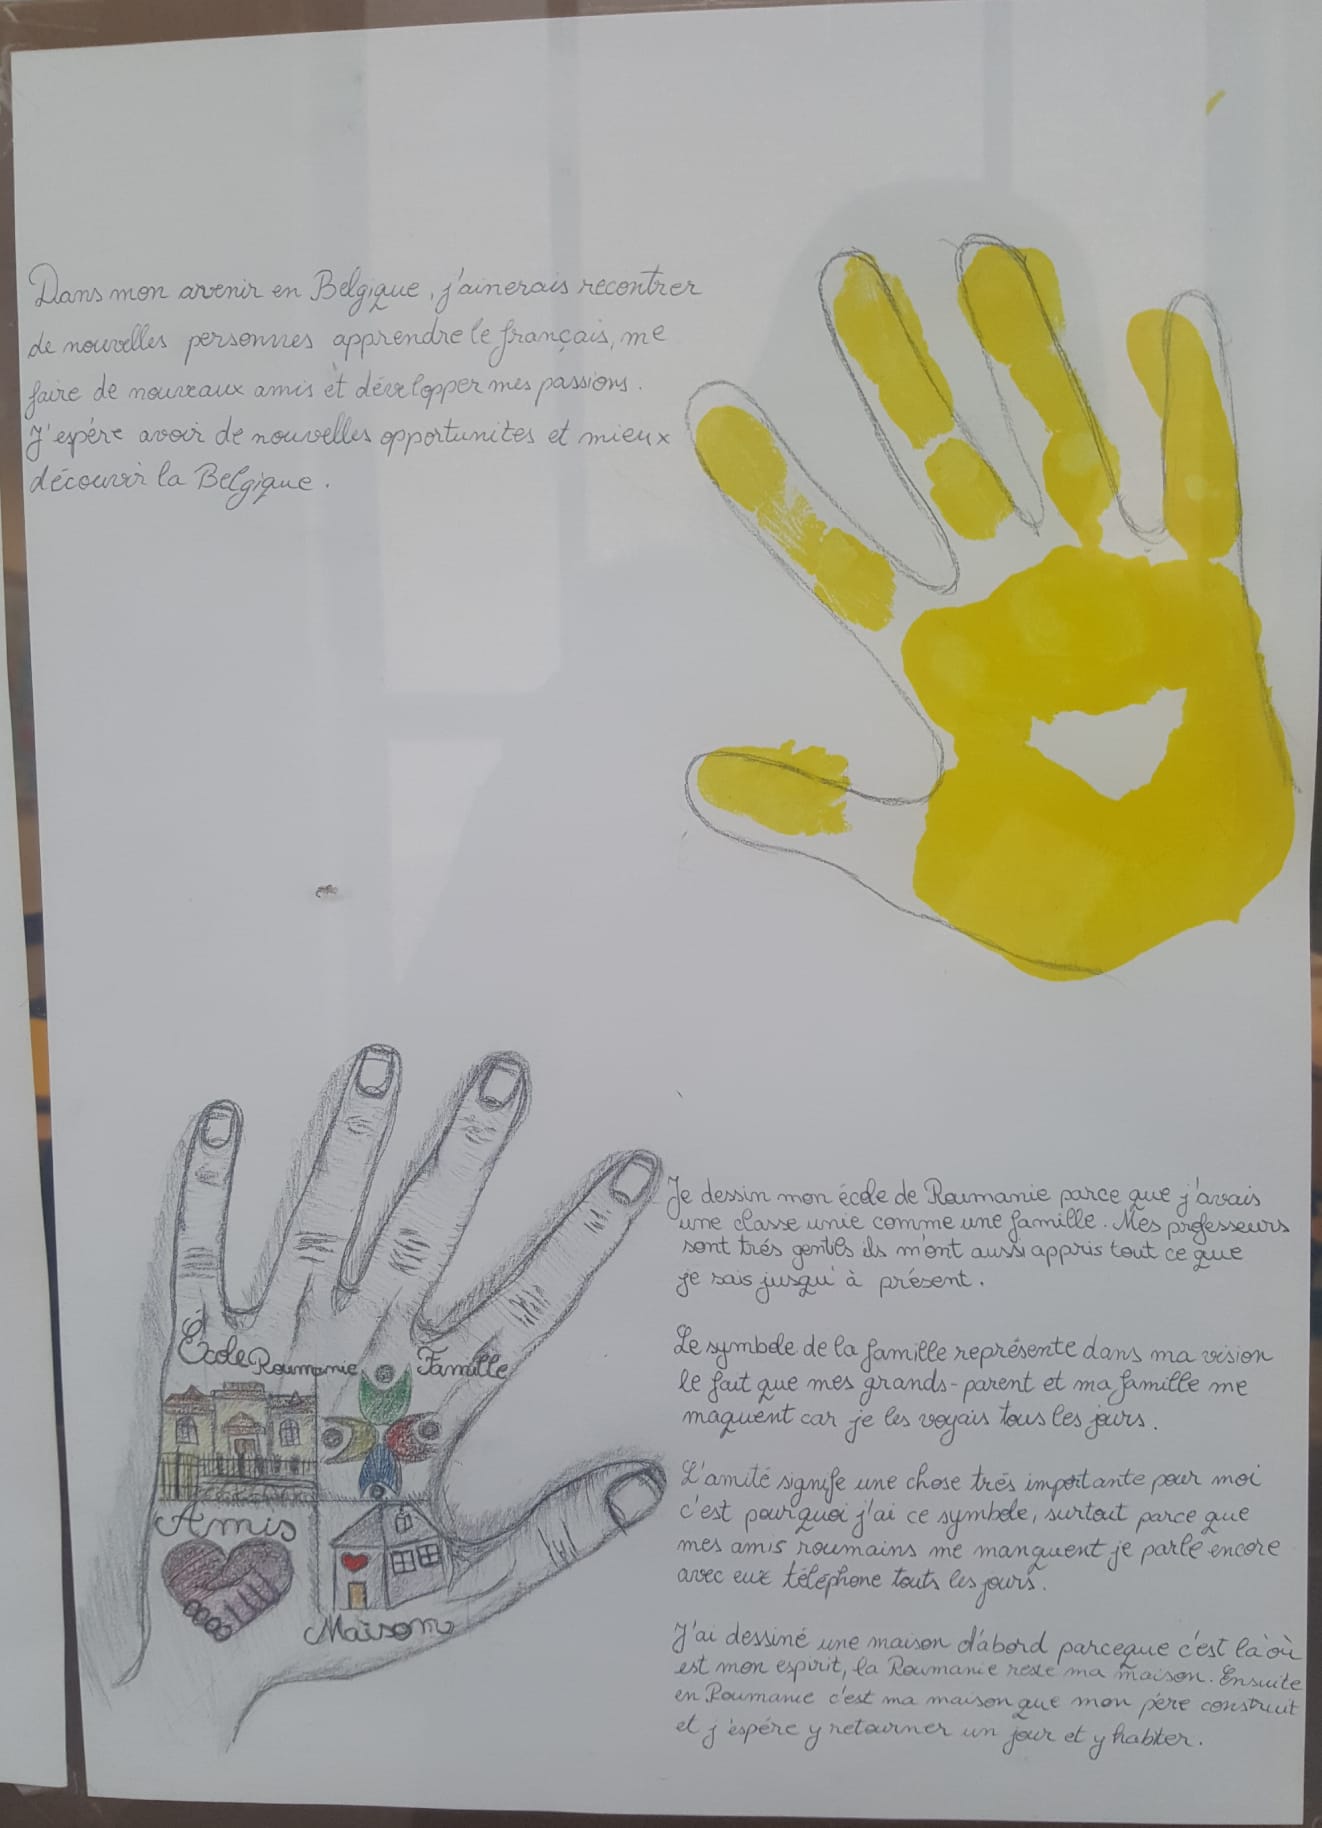 Dans mon avenir en Belgique, j'ainerais recontrer
de nouvelles personnes apprendre le français, me
faire de nouveaux amis et développer mes passions.
J'espére avoir de nouvelles opportunites et mieux
découvrir la Belgique.
École Roumanie
Famille
Amis
Maison
Je dessin mon école de Roumanie parce que j'avais
une classe unie comme une famille. Mes professeurs
sont trés gentils ils m'ont aussi appris tout ce que
je sais jusqu'à présent.
Le symbole de la famille représente dans ma vision
le fait que mes grands-parent et ma famille me
maquent car je les voyais tous les jours.
L'amité signife une chose trés importante pour moi
c'est pourquoi j'ai ce symbole, surtout parce que
mes amis roumains me manquent je parle encore
avec eux téléphone touts les jours.
J'ai dessiné une maison d'abord parceque c'est là où
est mon espirit, la Roumanie reste ma maison. Ensuite
en Roumanie c'est ma maison que mon pére construit
et j'espére y retourner un jour et y habiter.